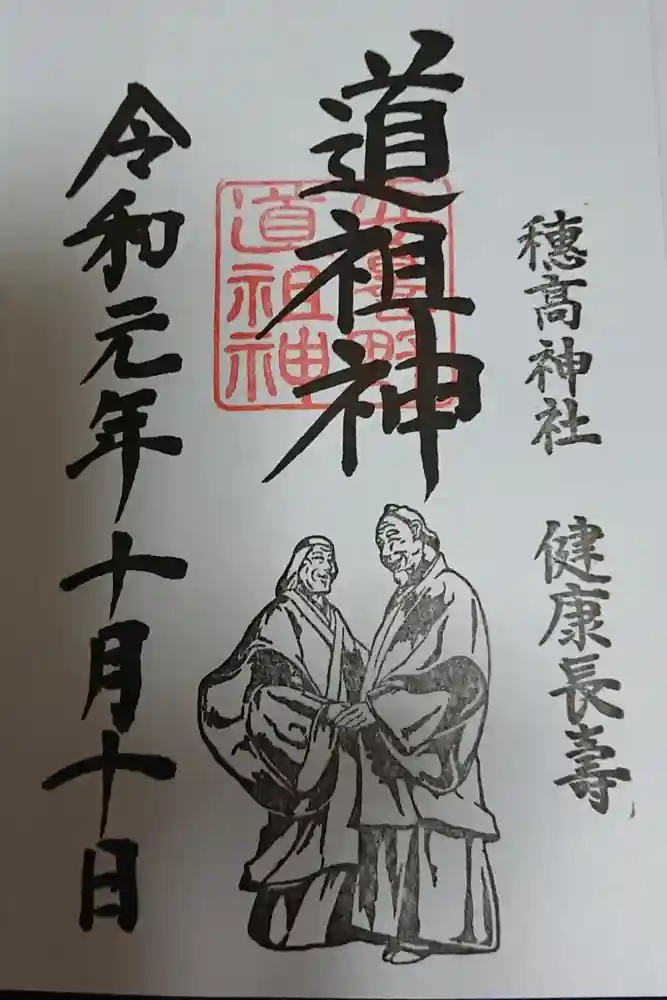 穂高神社 健康長壽
道祖神
安曇野
道祖神
令和元年十月十日